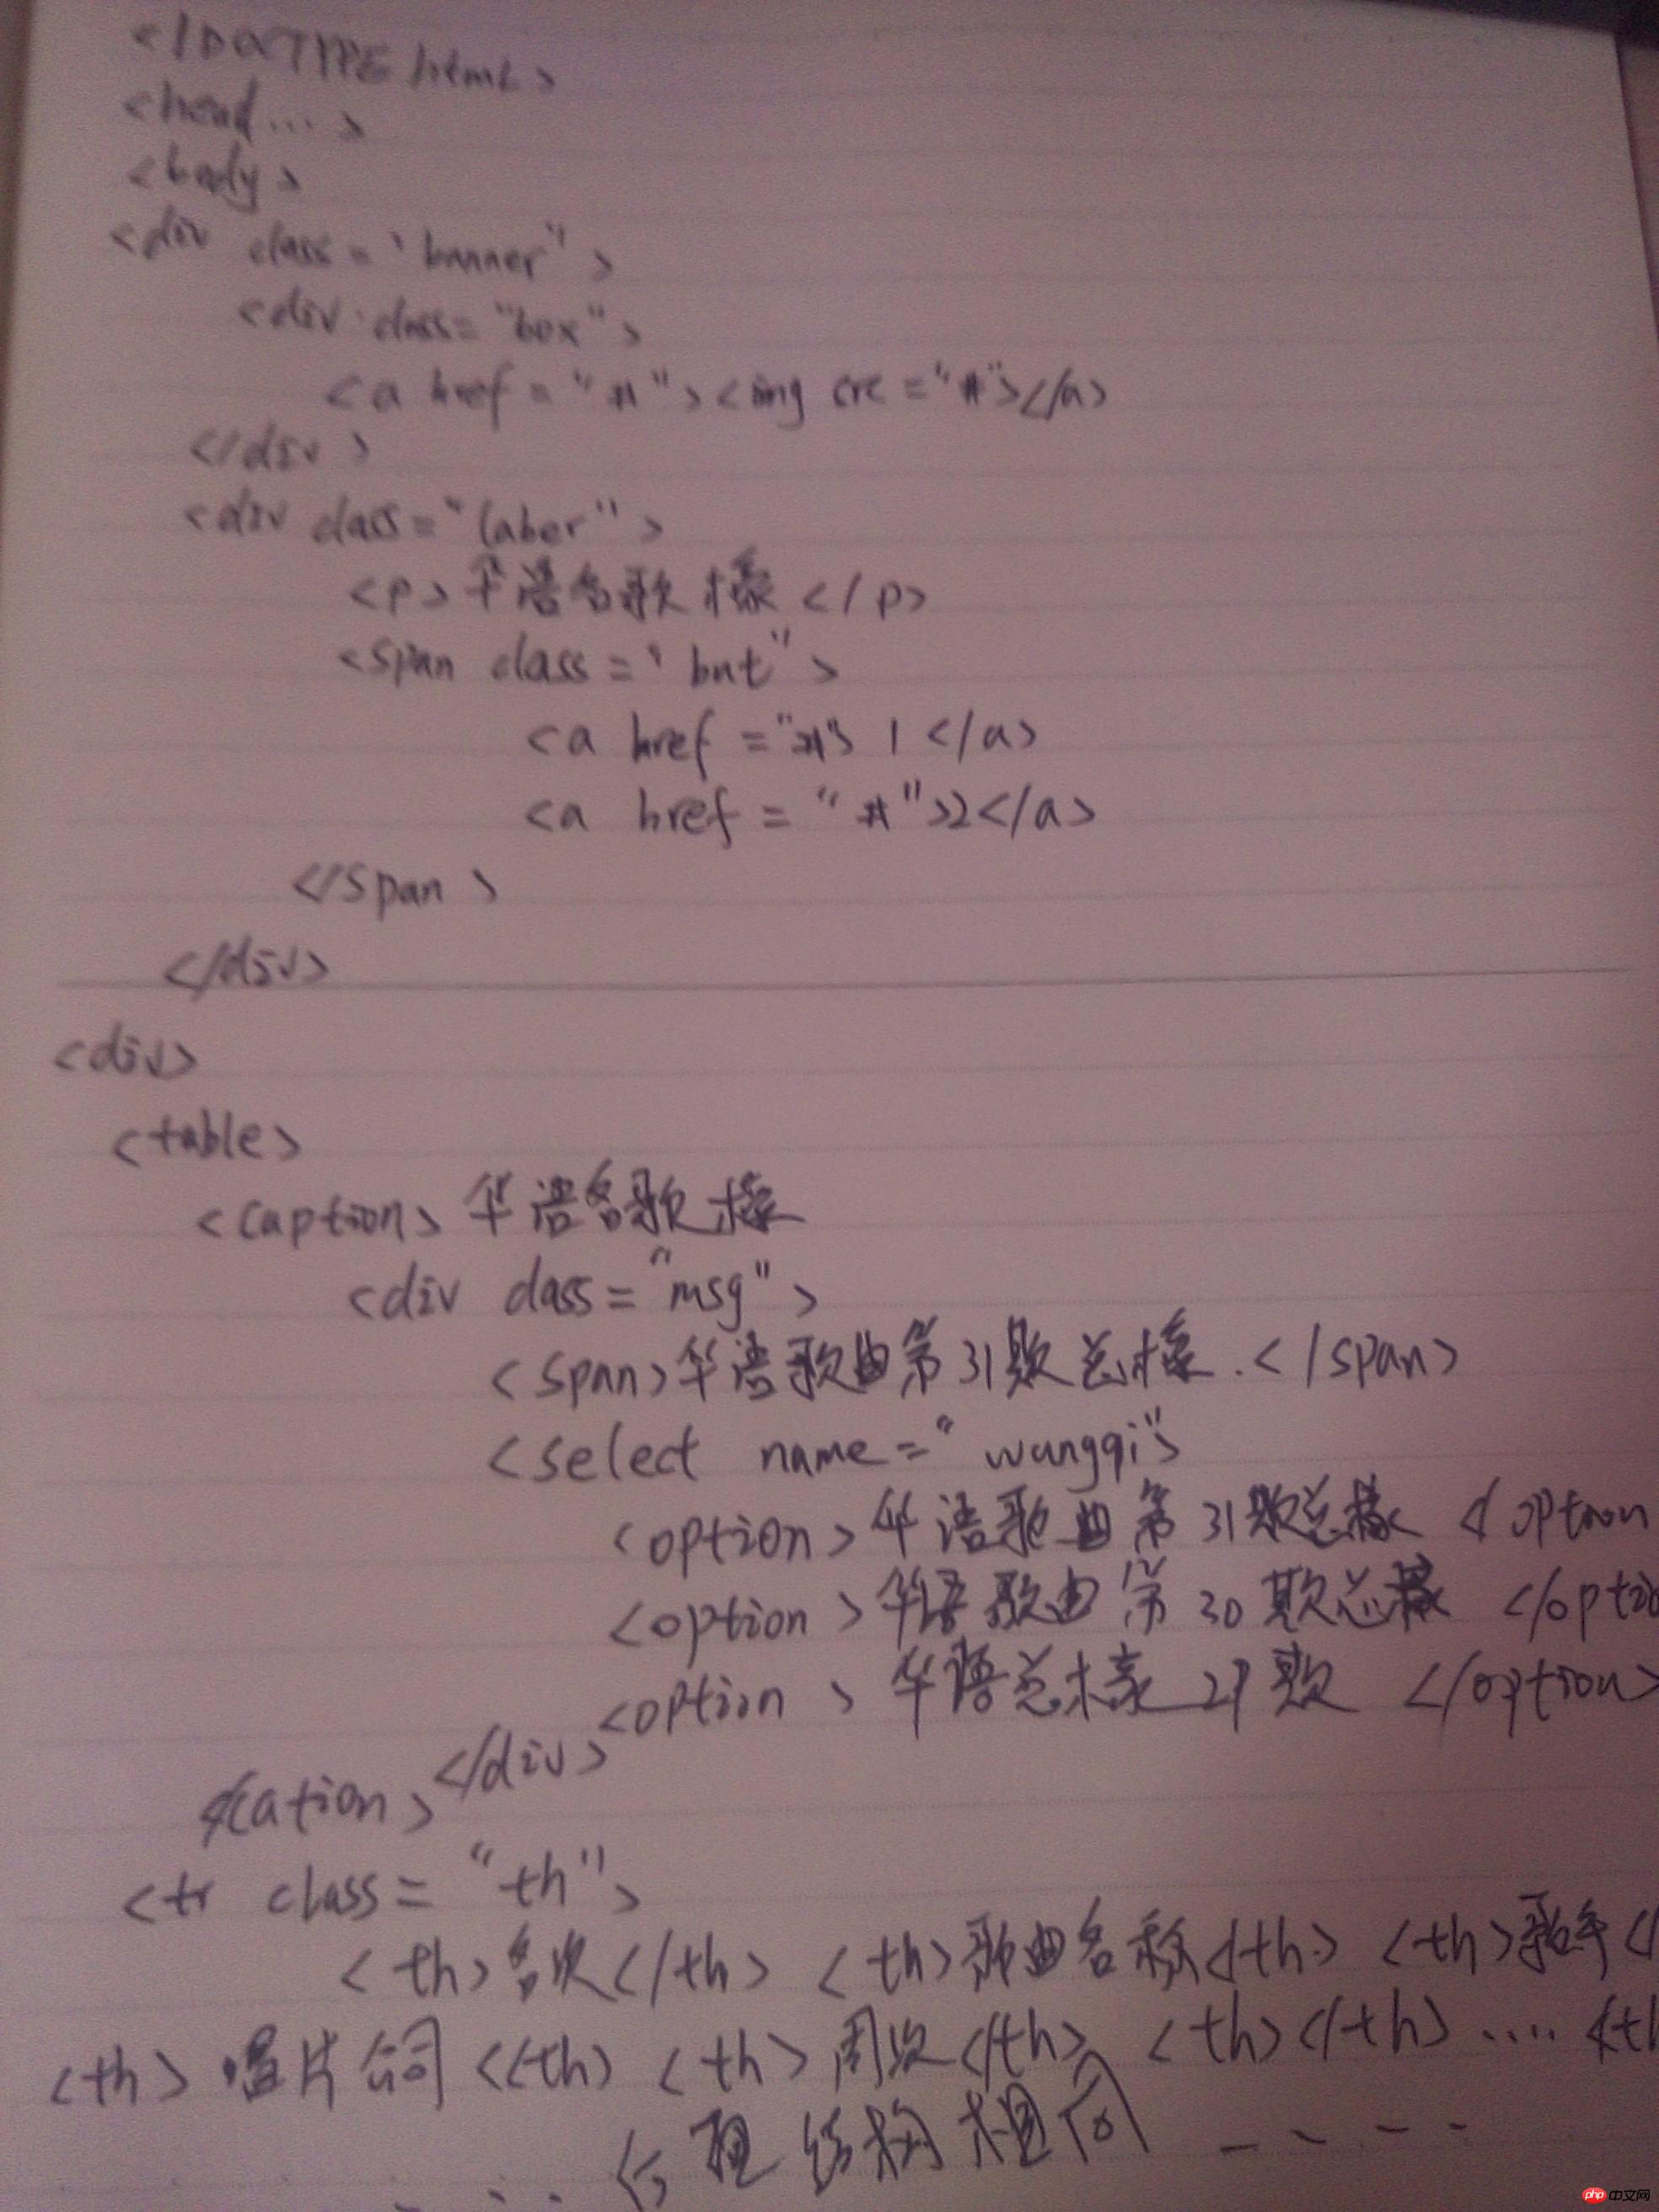 <!DOCTYPE html>
<head...>
<body>
<div class='banner">
<div class="box">
<a href="#"><img crc="#"></a>
</div>
<div class="laber">
<p>华语名歌榜</p>
<span class='bnt">
<a href="#"> 1 </a>
<a href="#">2</a>
</span>
</div>
<div>
<table>
<caption>华语名歌榜
<div class="msg">
<span>华语歌曲第31期总榜.</span>
<select name="wangqi">
<option>华语歌曲第31期总榜</option
<option>华语歌曲第30期总榜</optio
<option>华语总榜29期</option>
</div>
</cation>
<tr class="th">
<th>名次</th> <th>歌曲名称</th> <th>歌手</
<th>唱片公司<(th) <th>周次</th> <th></th>....</th
...结构相同----
php 中文网